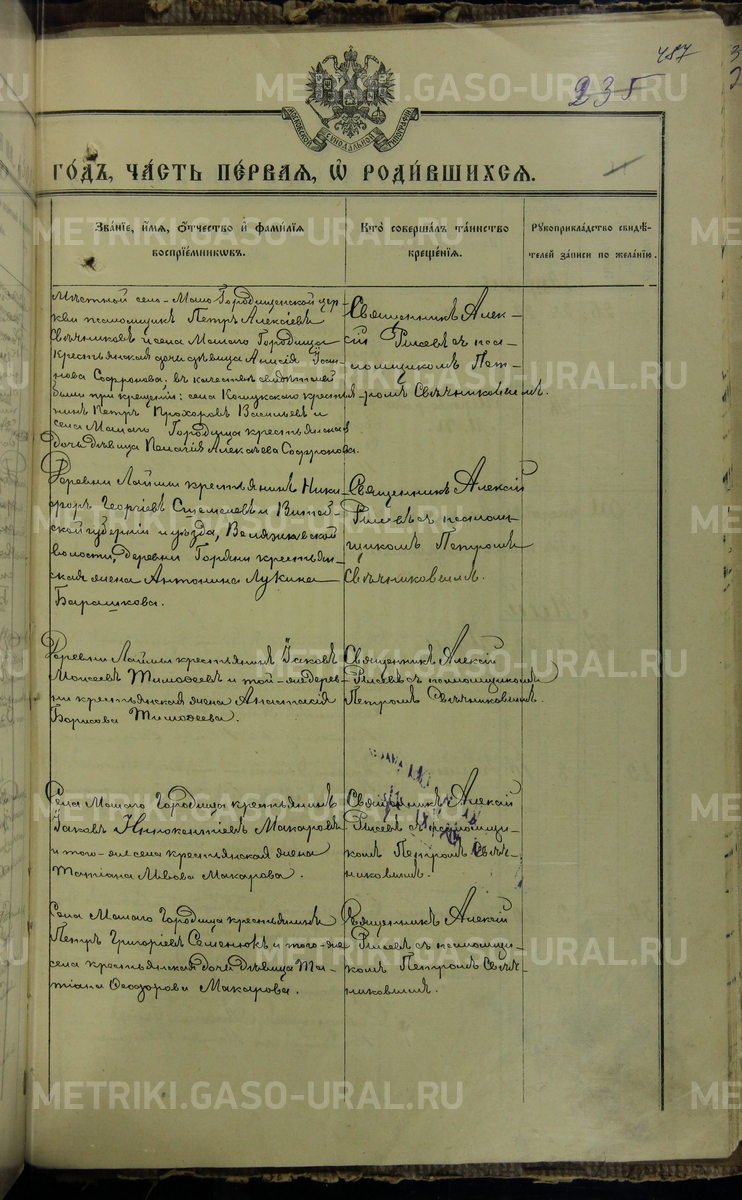 487
235
МОСКОВСКОЙ СУНОДАЛЬНОЙ ТИПОГРАФІИ
ГО́ДЪ, ЧА́СТЬ ПЕ́РВАѦ, Ѡ҆ РОДИ́ВШИХСѦ.
Зва́нїе, и҆́мѧ, ѻ҆́тчество и҆ фами́лїѧ
воспрїе́мникѡвъ.
Кто̀ соверша́лъ та́инство
креще́нїѧ.
Рꙋкоприкла́дство свидѣ́-
телей за́писи по жела́нїю.
Мѣстной село-Мало Городищенской цер-
кви псаломщикъ Петръ Алексіевъ
Свѣчниковъ и села Малаго Городища
крестьянская дочь дѣвица Анисія
Софронова; въ качествѣ свидѣтелей
были при крещеніи: села Кошукскаго крестья-
нинъ Петръ Прохоровъ Васильевъ и
села Малаго Городища крестьянская
дочь дѣвица Пелагія Алексѣева Софронова.
Священникъ Алек-
сій Рылеевъ съ пса-
ломщикомъ Пет-
ромъ Свѣчниковымъ.
Деревни Лаймы крестьянинъ Ники-
форъ Георгіевъ и Витеб-
ской губерніи и уѣзда, Веляшковской
волости, деревни Горяни крестьян-
ская жена Антонина Лукина
Барашкова.
Священникъ Алексій
Рылеевъ съ псалом-
щикомъ Петромъ
Свѣчниковымъ.
Деревни Лаймы крестьянинъ Іаковъ
Моисеевъ Тимофеевъ и той-же дерев-
ни крестьянская жена Анастасія
Борисова Тимофеева.
Священникъ Алексій
Рылеевъ съ псаломщикомъ
Петромъ Свѣчниковымъ.
Села Малаго Городища крестьянинъ
Іаковъ Иннокентіевъ Макаровъ
и того-же села крестьянская жена
Татіана Львова Макарова.
Священникъ Алексій
Рылеевъ съ псаломщи-
комъ Петромъ Свѣч-
никовымъ.
Села Малаго Городища крестьянинъ
Петръ Григоріевъ Семенюкъ и того-же
села крестьянская дочь дѣвица Та-
тіана Ѳеодорова Макарова.
Священникъ Алексій
Рылеевъ съ псаломщи-
комъ Петромъ Свѣч-
никовымъ.
METRIKI.GASO-URAL.RU